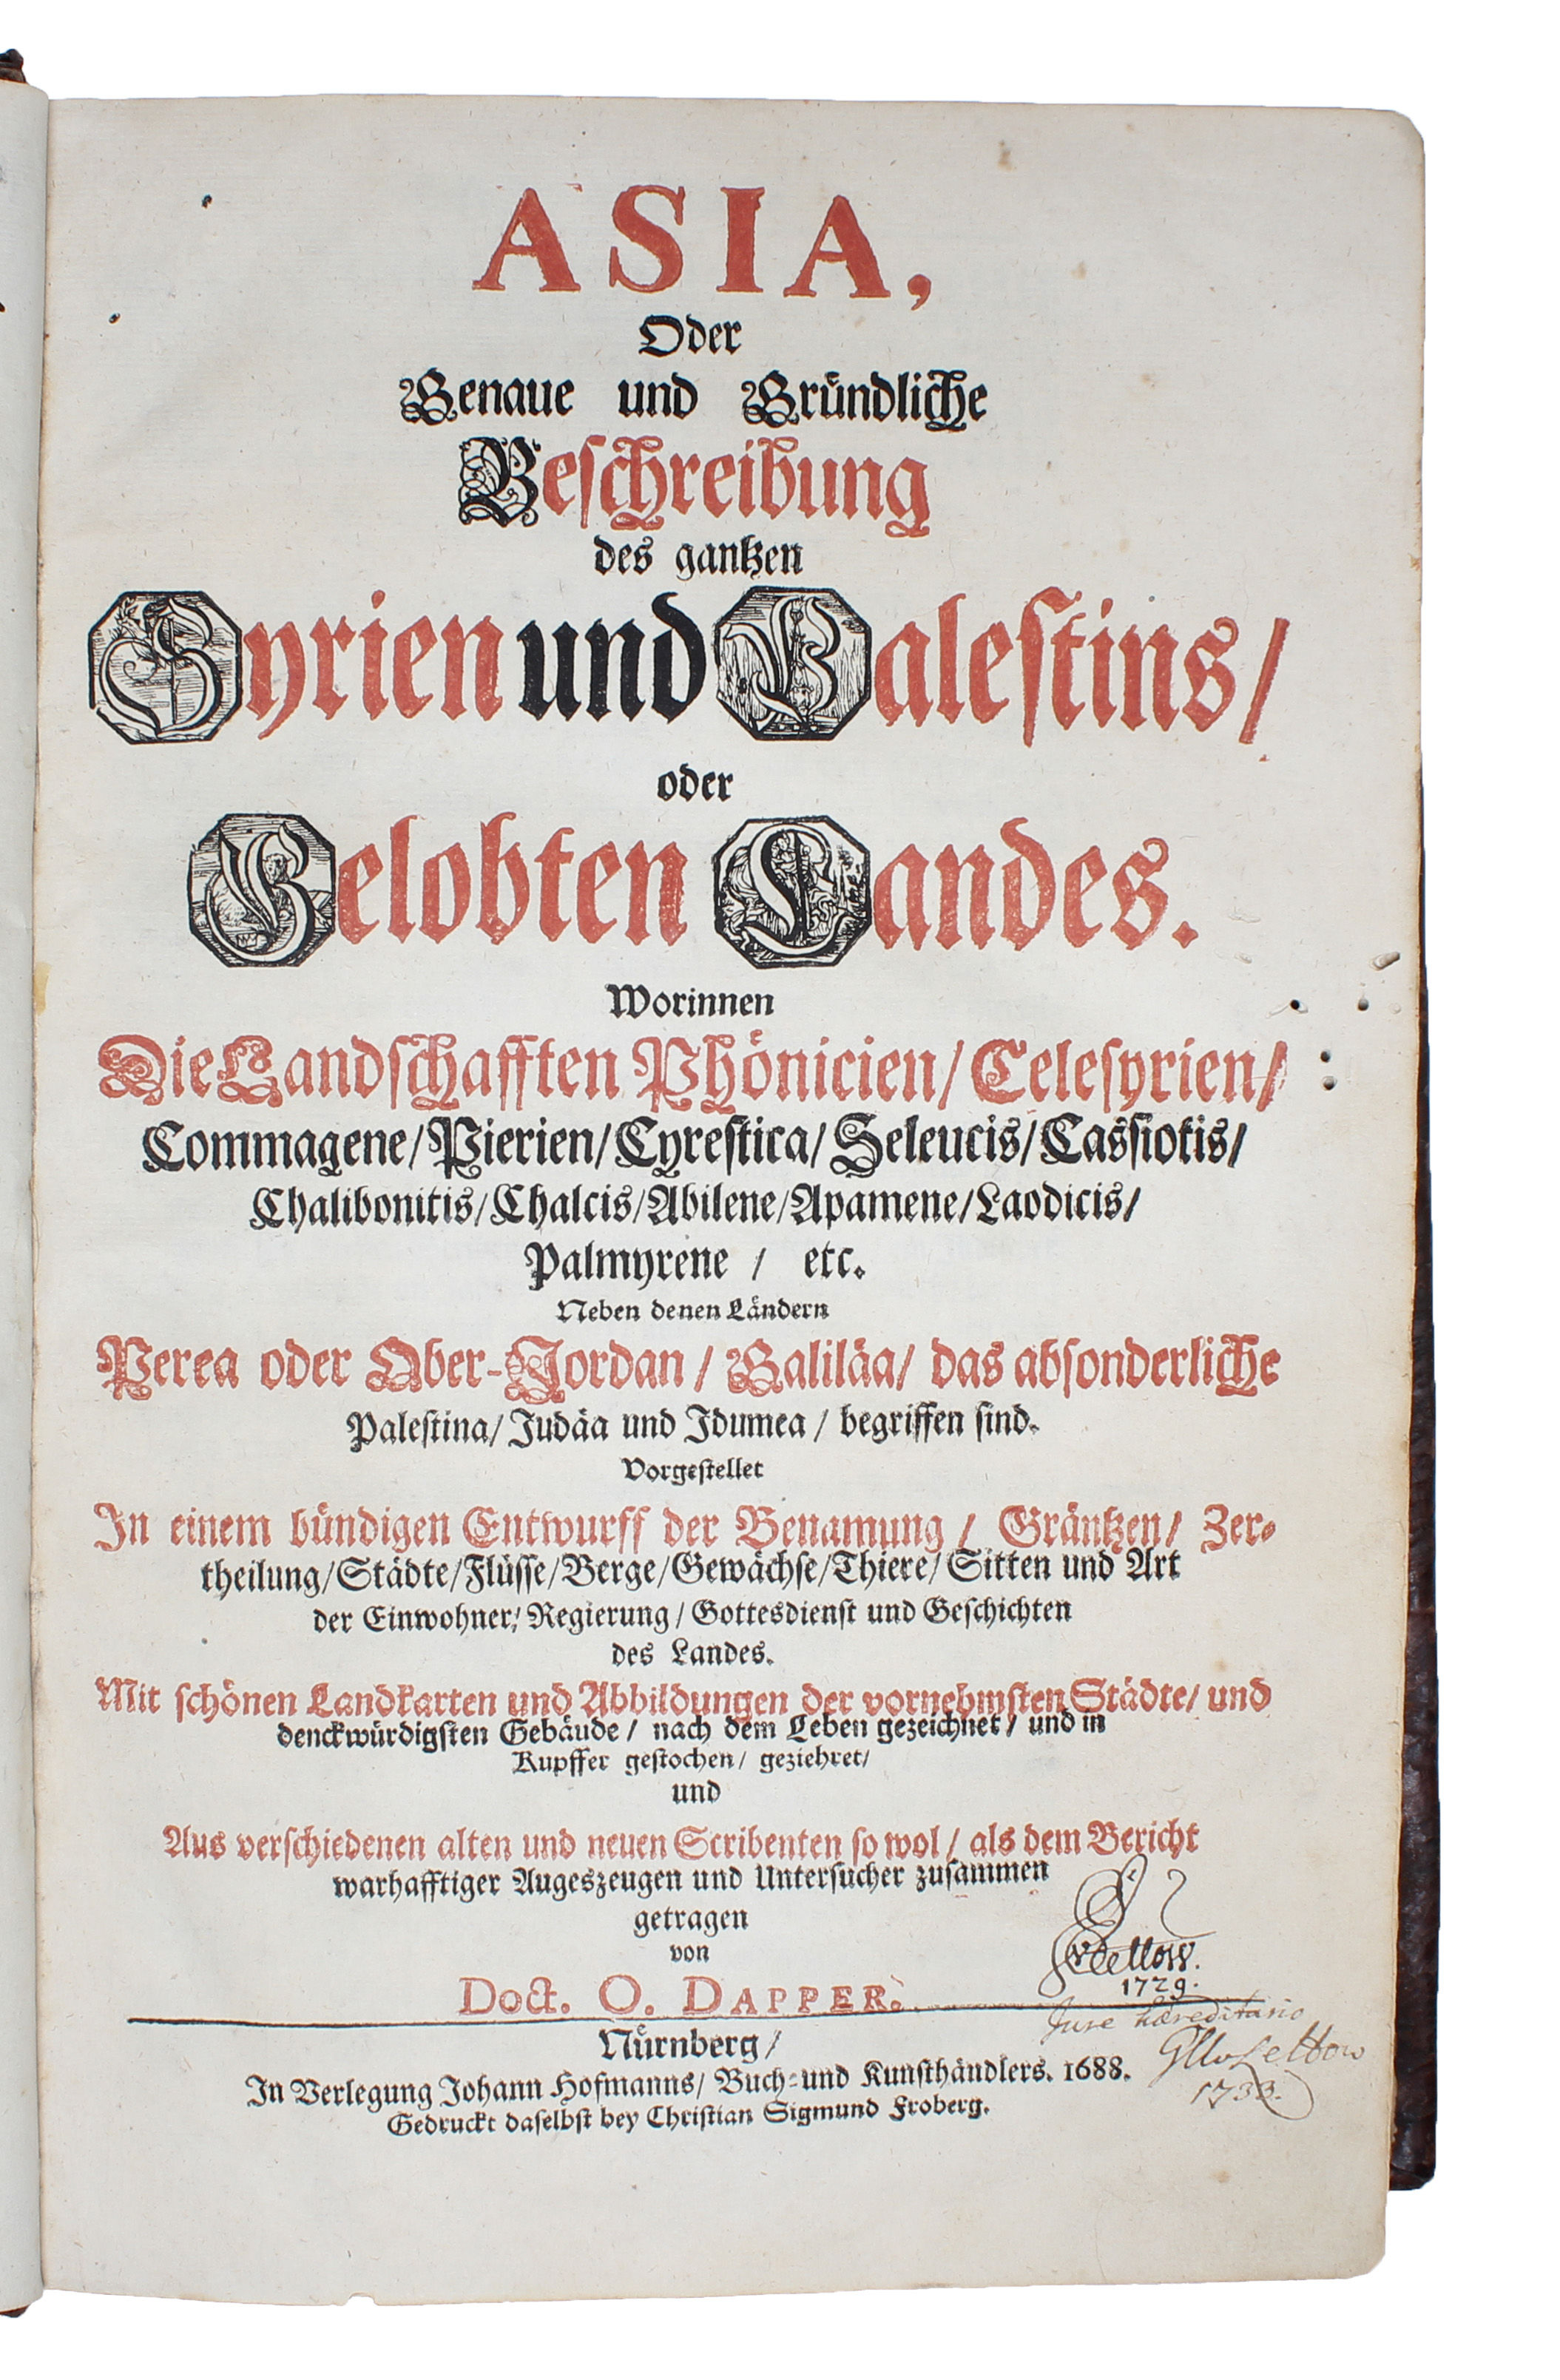 ASIA,
Oder
Genaue und Gründliche
Beschreibung
des gantzen
Syrien und Palestins/
oder
Gelobten Landes.
Worinnen
Die Landschafften Phönicien/ Celesyrien/
Commagene/ Pierien/ Cyrestica/ Seleucis/ Cassiotis/
Chalibonitis/ Chalcis/ Abilene/ Apamene/ Laodicis/
Palmyrene / etc.
Neben denen Ländern
Perea oder Ober-Jordan / Galiläa/ das absonderliche
Palestina/ Judäa und Idumea / begriffen sind.
Vorgestellet
In einem bündigen Entwurff der Benamung / Gräntzen/ Zer-
theilung/ Städte/ Flüsse/ Berge/ Gewächse/ Thiere/ Sitten und Art
der Einwohner/ Regierung/ Gottesdienst und Geschichten
des Landes.
Mit schönen Landkarten und Abbildungen der vornehmsten Städte/ und
denckwürdigsten Gebäude / nach dem Leben gezeichnet/ und in
Kupffer gestochen/ geziehret/
und
Aus verschiedenen alten und neuen Scribenten so wol / als dem Bericht
warhafftiger Augeszeugen und Untersucher zusammen
getragen
von
Doct. O. DAPPER.
1729.
Jure hæreditario
1733.
Nürnberg/
In Verlegung Johann Hofmanns/ Buch- und Kunsthändlers. 1688.
Gedruckt daselbst bey Christian Sigmund Froberg.